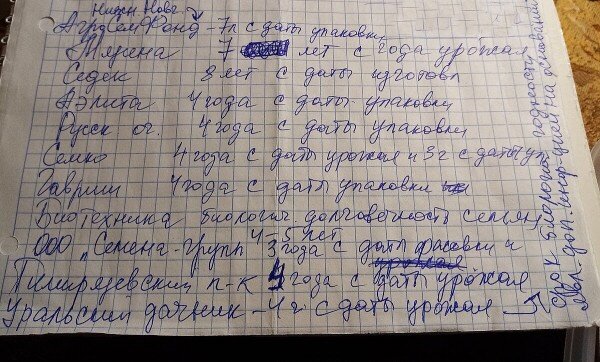 Нижн. Новг.
АгроСемФонд - 7л с даты упаковки
Марина 7 лет с года урожая
Седек 8 лет с даты изготовл
Аэлита 4 года с даты упаковки
Русск. ог. 4 года с даты упаковки
Семко 4 года с даты урожая и 3 г с даты уп
Гавриш 4 года с даты упаковки
Биотехника биологич. долговечность семян
4-5 лет
ООО „Семена-групп 3 года с даты фасовки и
Тимирязевский п-к 4 года с даты урожая
Уральский дачник - 4 г с даты урожая
срок годности
явл. доп. инф-цией на основании